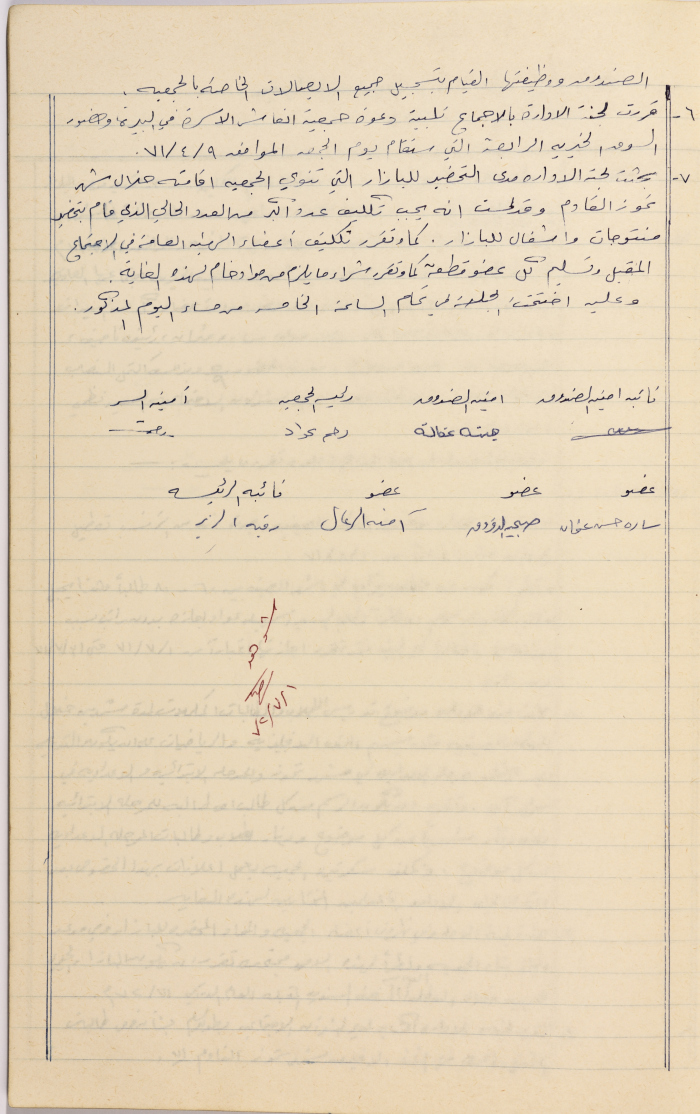 الصندوق ووظيفتها القيام بتسجيل جميع الايصالات الخاصة بالجمعيه .
٦- قررت لجنة الادارة بالاجماع تلبية دعوة جمعية انعاش الاسرة في البيرة وحضور
السوق الخيريه الرابعة التي ستقام يوم الجمعه الموافقه ٧١/٤/٩ .
٧- بحثت لجنة الاداره مدى التحضير للبازار التي تنوي الجمعيه اقامته خلال شهر
تموز القادم وقد لمست انه يجب تكليف عدد اكبر من العدد الحالي الذي قام بتحضير
منتوجات واشغال للبازار . كما وتقرر تكليف أعضاء الهيئه العامة في الاجتماع
المقبل وتسليم كل عضو قطعة كما وتقرر شراء ما يلزم من مواد خام لهذه الغاية .
وعليه اختتمت الجلسة في تمام الساعة الخامسه من مساء اليوم المذكور .
نائبه امينه الصندوق امينه الصندوق رئيسه الجمعيه أمينه السر
رحمة
عضو عضو عضو نائبه الرئيسه
ساره حسن آمنه
٧٢/٧/٢١